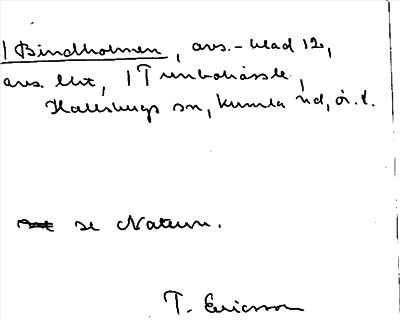 1 Bindholmen, avs.-blad 12,
avs. utt, 1 Tunbohässle,
Hallsbergs sn, Kumla hd, ör. l.
se Naturn.
T. Ericsson